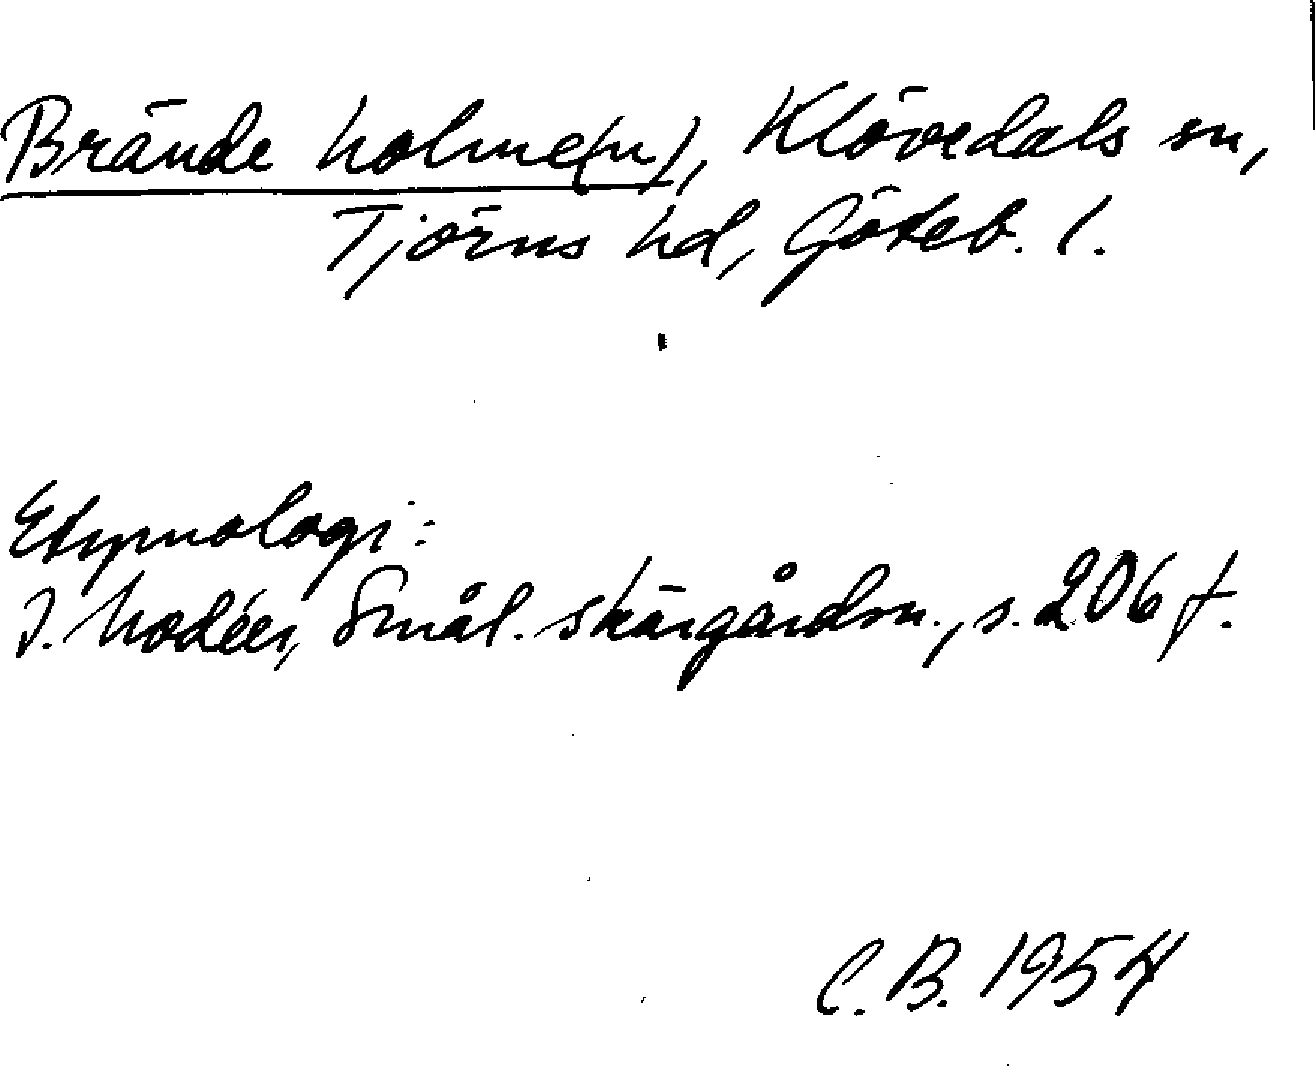 Brände holme(n), Klövedals sn,
Tjörns hd, Göteb. l.
Etymologi:
I. Modéer, Smål. skärgårdsn., s. 206 f.
C.B. 1954